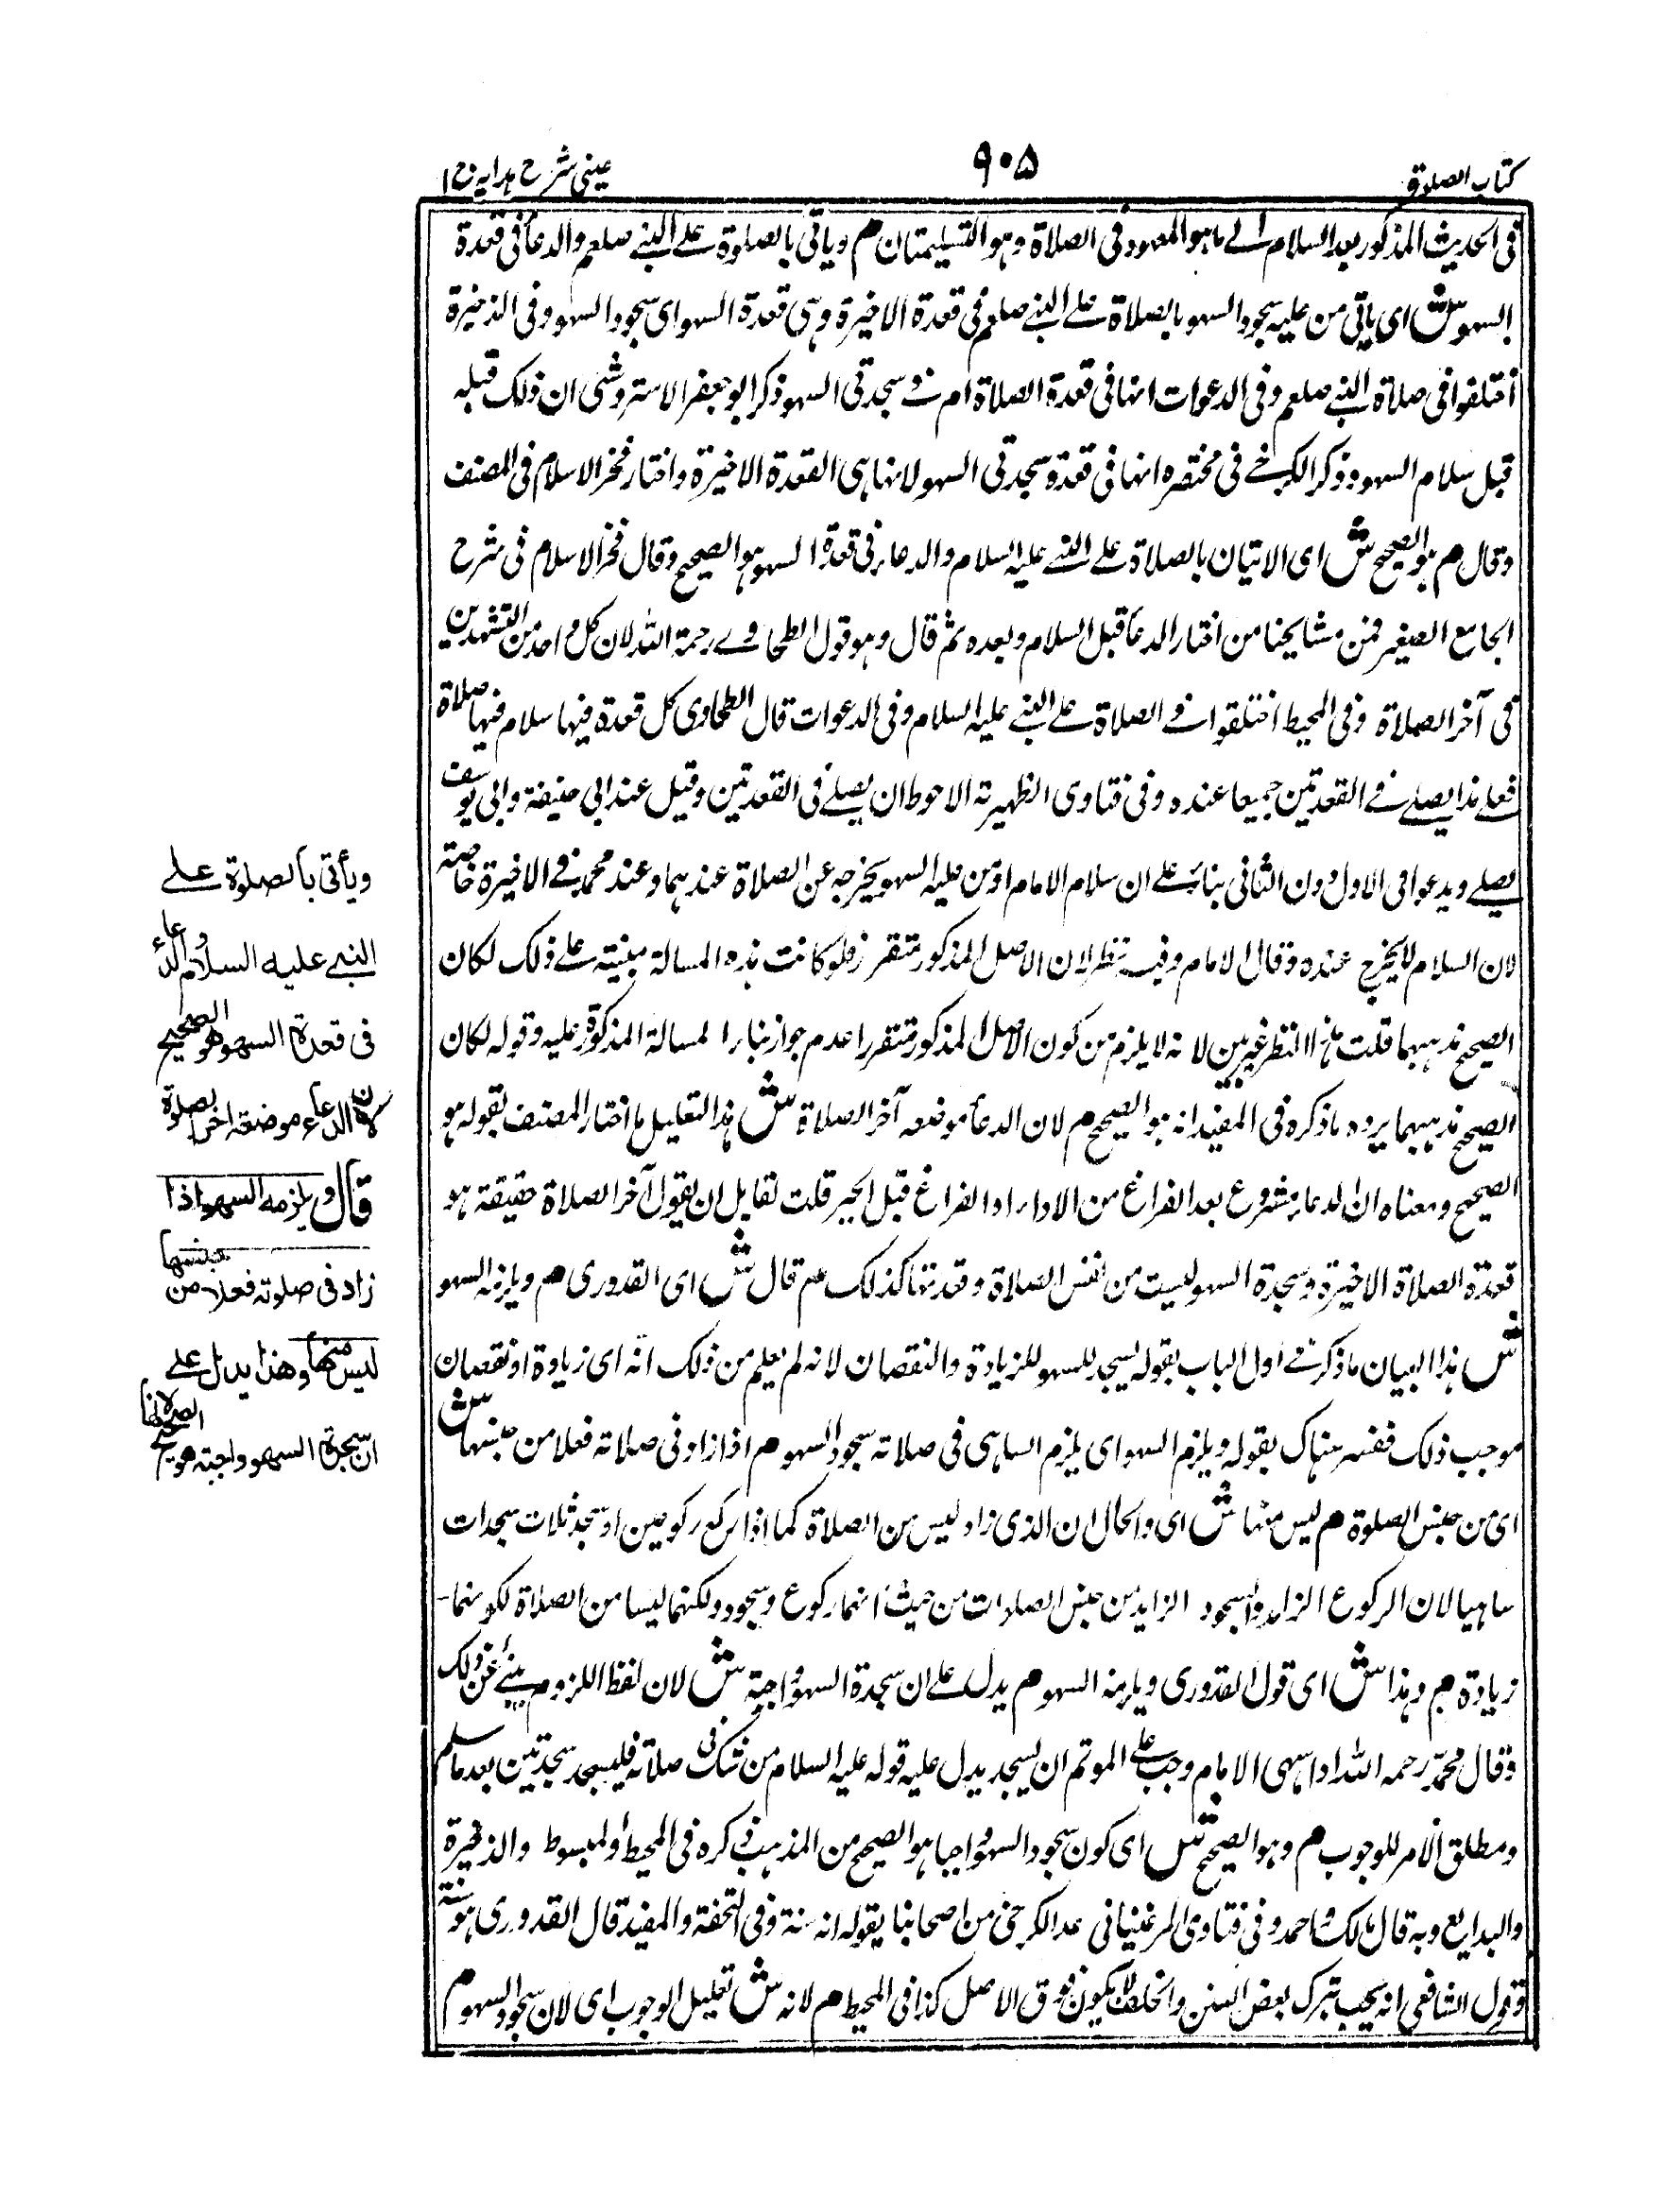 كتاب الصلوة
٩٠٥
عینی شرح ہدایہ ج ١
فی الحدیث المذکور بعد السلام الے ما ہو المعہود فی الصلاة و ہو التسلیمتان م ویاتی بالصلوة علے النبے صلعم والدعأ فی قعدة
السہو ش ای یاتی من علیہ سجود السہو بالصلاة علے النبے صلعم فی قعدة الاخیرة وہی قعدة السہو ای سجود السہو وفی الذخیرة
اختلفوا فی صلاة النبے صلعم وفی الدعوات انہا فی قعدة الصلاة ام فے سجدتی السہو ذکر ابو جعفر الاستروشنی ان ذلک قبلہ
قبل سلام السہو وذکر الکرخے فی مختصرہ انہا فی قعدة سجدتی السہو لانہا ہی القعدة الاخیرة واختار فخر الاسلام فی المصنف
وقال م ہو الصحیح ش ای الاتیان بالصلاة علے النبے علیہ السلام والدعاء فی قعدة السہو ہو الصحیح وقال فخر الاسلام فی شرح
الجامع الصغیر فمن مشایخنا من اختار الدعأ قبل السلام وبعدہ ثم قال وہو قول الطحاوے رحمة اللہ لان کل واحد من التشہدین
فی آخر الصلاة وفی المحیط اختلفوا فے الصلاة علے النبے علیہ السلام وفی الدعوات قال الطحاوی کل قعدة فیہا سلام فیہا صلاة
فعلے ہذا یصلے فے القعدتین جمیعا عندہ وفی فتاوی الظہیرتہ الاحوط ان یصلے فی القعدتین وقیل عند ابی حنیفة وابی یوسف
یصلے ویدعوا فی الاول دون الثانی بناء علے ان سلام الامام او من علیہ السہو یخرجہ عن الصلاة عندہما وعند محمد فے الاخیرة خاصتہ
لان السلام لا یخرج عندہ وقال الامام وفیہ نظر لان الاصل المذکور متقرر فلو کانت ہذہ المسالة مبنیتہ علے ذلک لکان
الصحیح مذہبہما قلت ہذا النظر غیر بین لانہ لا یلزم من کون الاصل المذکور متقررا عدم جواز بناء المسالة المذکورة علیہ وقولہ لکان
الصحیح مذہبہما یردہ ما ذکرہ فی المفید انہ ہو الصحیح م لان الدعأ موضعہ آخر الصلاة ش ہذا التعلیل ما اختار المصنف بقولہ ہو
الصحیح ومعناہ ان الدعاء مشروع بعد الفراغ من الاداء او الفراغ قبل الجبر قلت لقایل ان یقول آخر الصلاة حقیقة ہو
قعدة الصلاة الاخیرة وسجدة السہو لیست من نفس الصلاة وقعدتہا کذلک م قال ش ای القدوری م ویلزمہ السہو
ش ہذا البیان ما ذکر فے اول الباب بقولہ یسجد للسہو للزیادة والنقصان لانہ لم یعلم من ذلک انہ ای زیادة او نقصان
موجب ذلک ففسر ہناک بقولہ ویلزم السہو ای یلزم الساہی فی صلاتہ سجود السہو م اذا زاد فی صلاتہ فعلا من جنسہا ش
ای من جنس الصلوة م لیس منہا ش ای والحال ان الذی زاد لیس من الصلاة کما اذا رکع رکوعین او سجد ثلاث سجدات
ساہیا لان الرکوع الزاید والسجود الزاید من جنس الصلوات من حیث انہما رکوع وسجود ولکنہما لیسا من الصلاة لکونہما
زیادة م وہذا ش ای قول القدوری ویلزمہ السہو م یدل علے ان سجدة السہو واجبة ش لان لفظ اللزوم ینبئے عن ذلک
وقال محمد رحمہ اللہ اذا سہی الامام وجب علے الموتم ان یسجد یدل علیہ قولہ علیہ السلام من شک فی صلاتہ فلیسجد سجدتین بعد ما سلم
ومطلق الامر للوجوب م وہو الصحیح ش ای کون سجود السہو واجبا ہو الصحیح من المذہب ذکرہ فی المحیط والمبسوط والذخیرة
والبدایع وبہ قال مالک واحمد وفی فتاوی المرغینانی عد الکرخی من اصحابنا یقولہ انہ سنة وفی التحفة والمفید قال القدوری ہو سنتہ
وقول الشافعی انہ یجب بترک بعض السنن والخلف لا یکون فوق الاصل کذا فی المحیط م لانہ ش تعلیل الوجوب ای لان سجود السہو م
ویأتی بالصلوة علے
النبے علیہ السلام والدعاء
فی قعدة السھو ھو الصحیح
لان الدعاء موضعہ اخر الصلوة
قال ویلزمہ السھو اذا
زاد فی صلوتہ فعلا من جنسھا
لیس منھا وھذا یدل علے
ان سجدة السھو واجبتہ ھو الصحیح لانھا